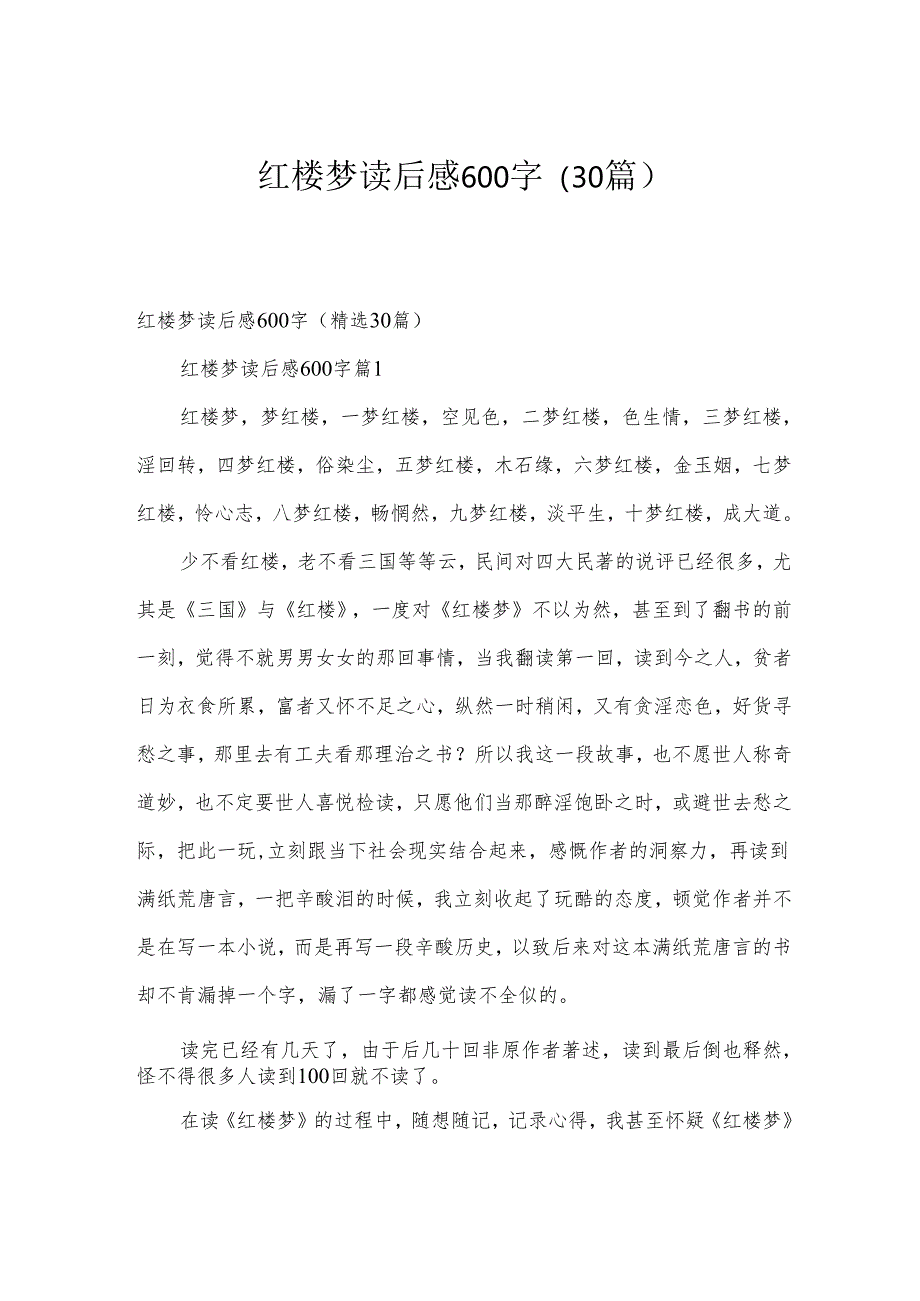 红楼梦读后感600字（30篇）
红楼梦读后感600字（精选30篇）
红楼梦读后感600字篇1
红楼梦，梦红楼，一梦红楼，空见色，二梦红楼，色生情，三梦红楼，
淫回转，四梦红楼，俗染尘，五梦红楼，木石缘，六梦红楼，金玉姻，七梦
红楼，怜心志，八梦红楼，畅惘然，九梦红楼，淡平生，十梦红楼，成大道。
少不看红楼，老不看三国等等云，民间对四大民著的说评已经很多，尤
其是《三国》与《红楼》，一度对《红楼梦》不以为然，甚至到了翻书的前
一刻，觉得不就男男女女的那回事情，当我翻读第一回，读到今之人，贫者
日为衣食所累，富者又怀不足之心，纵然一时稍闲，又有贪淫恋色，好货寻
愁之事，那里去有工夫看那理治之书？所以我这一段故事，也不愿世人称奇
道妙，也不定要世人喜悦检读，只愿他们当那醉淫饱卧之时，或避世去愁之
际，把此一玩,立刻跟当下社会现实结合起来，感慨作者的洞察力，再读到
满纸荒唐言，一把辛酸泪的时候，我立刻收起了玩酷的态度，顿觉作者并不
是在写一本小说，而是再写一段辛酸历史，以致后来对这本满纸荒唐言的书
却不肯漏掉一个字，漏了一字都感觉读不全似的。
读完已经有几天了，由于后几十回非原作者著述，读到最后倒也释然，
怪不得很多人读到100回就不读了。
在读《红楼梦》的过程中，随想随记，记录心得，我甚至怀疑《红楼梦》